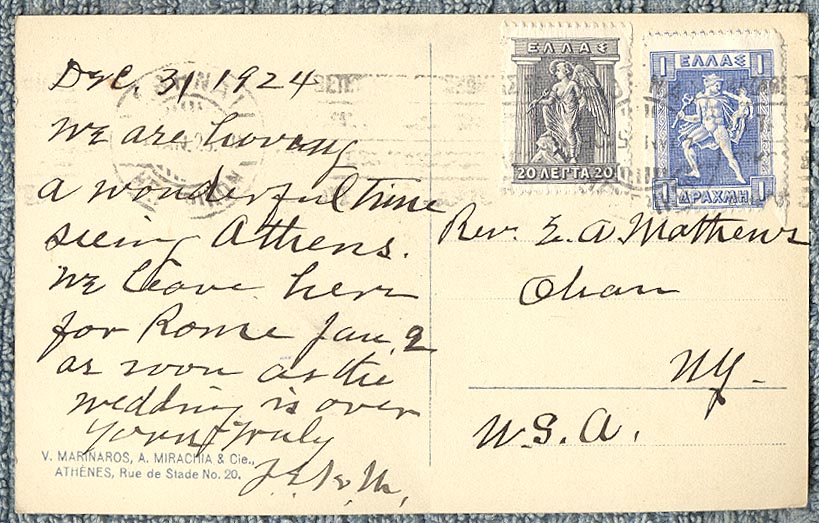 Dec. 31 1924
We are having
a wonderful time
seeing Athens.
We leave here
for Rome Jan. 2
as soon as the
wedding is over
Yours truly
V. MARINAROS, A. MIRACHIA & Cie.,
ATHÈNES, Rue de Stade No. 20.
ΕΛΛΑΣ
20 ΛΕΠΤΑ 20
1 ΕΛΛΑΣ 1
1 ΔΡΑΧΜΗ 1
Rev. E. A. Mathews
Olean
N.Y.
U.S.A.